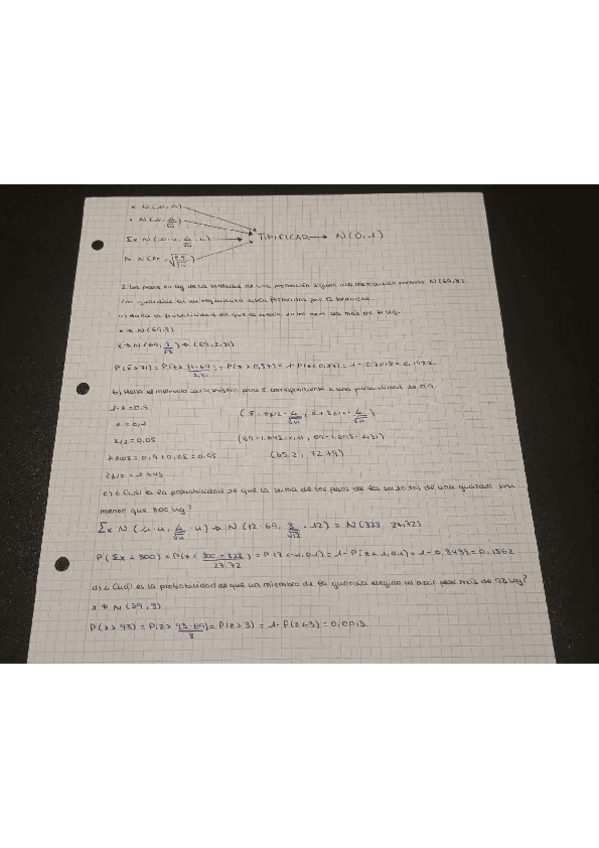 x N(μ, σ)
x̄ N(μ, σ/√n)
Σx N(μ·n, σ/√n · n)
TIPIFICAR → N(0,1)
2. Los pesos en kg de los soldados de una promoción siguen una distribución normal N(69,8).
Las guardias en un regimiento están formadas por 12 soldados
a) Halla la probabilidad de que la media, en kg sea más de 71 kg.
x → N(69,8)
x̄ → N(69, 8/√12) → (69, 2,31)
P(x̄>71) = P(z> 71-69/2,31) = P(z>0,87) = 1-P(z<0,87) = 1-
b) Halla el intervalo característico para x̄ correspondiente a una probabilidad de 0,9
1-α = 0,9
(x̄ - zα/2 · σ/√n, x̄ + zα/2 · σ/√n)
α = 0,1
α/2 = 0,05
(69-1.645·2,31, 69+1.645·2,31)
0,9+0,05 = 0.95
(65.2, 72,79)
zα/2 = 1.645
c) ¿Cuál es la probabilidad de que la suma de los pesos de los soldados de una guardia sea
menor que 800 kg?
Σx N(μ·n, σ/√n · n) → N(12·69, 8/√12 · 12) = N(828, 27,72)
P(Σx < 800) = P(z < 800-828/27,72) = P(z<-1,01) = 1-P(z<1,01) = 1-0,8438 = 0,1562
d) ¿Cuál es la probabilidad de que un miembro de la guardia elegido al azar pese más de 93 kg?
x → N(69,8)
P(x>93) = P(z> 93-69/8) = P(z>3) = 1-P(z<3) = 0,0013